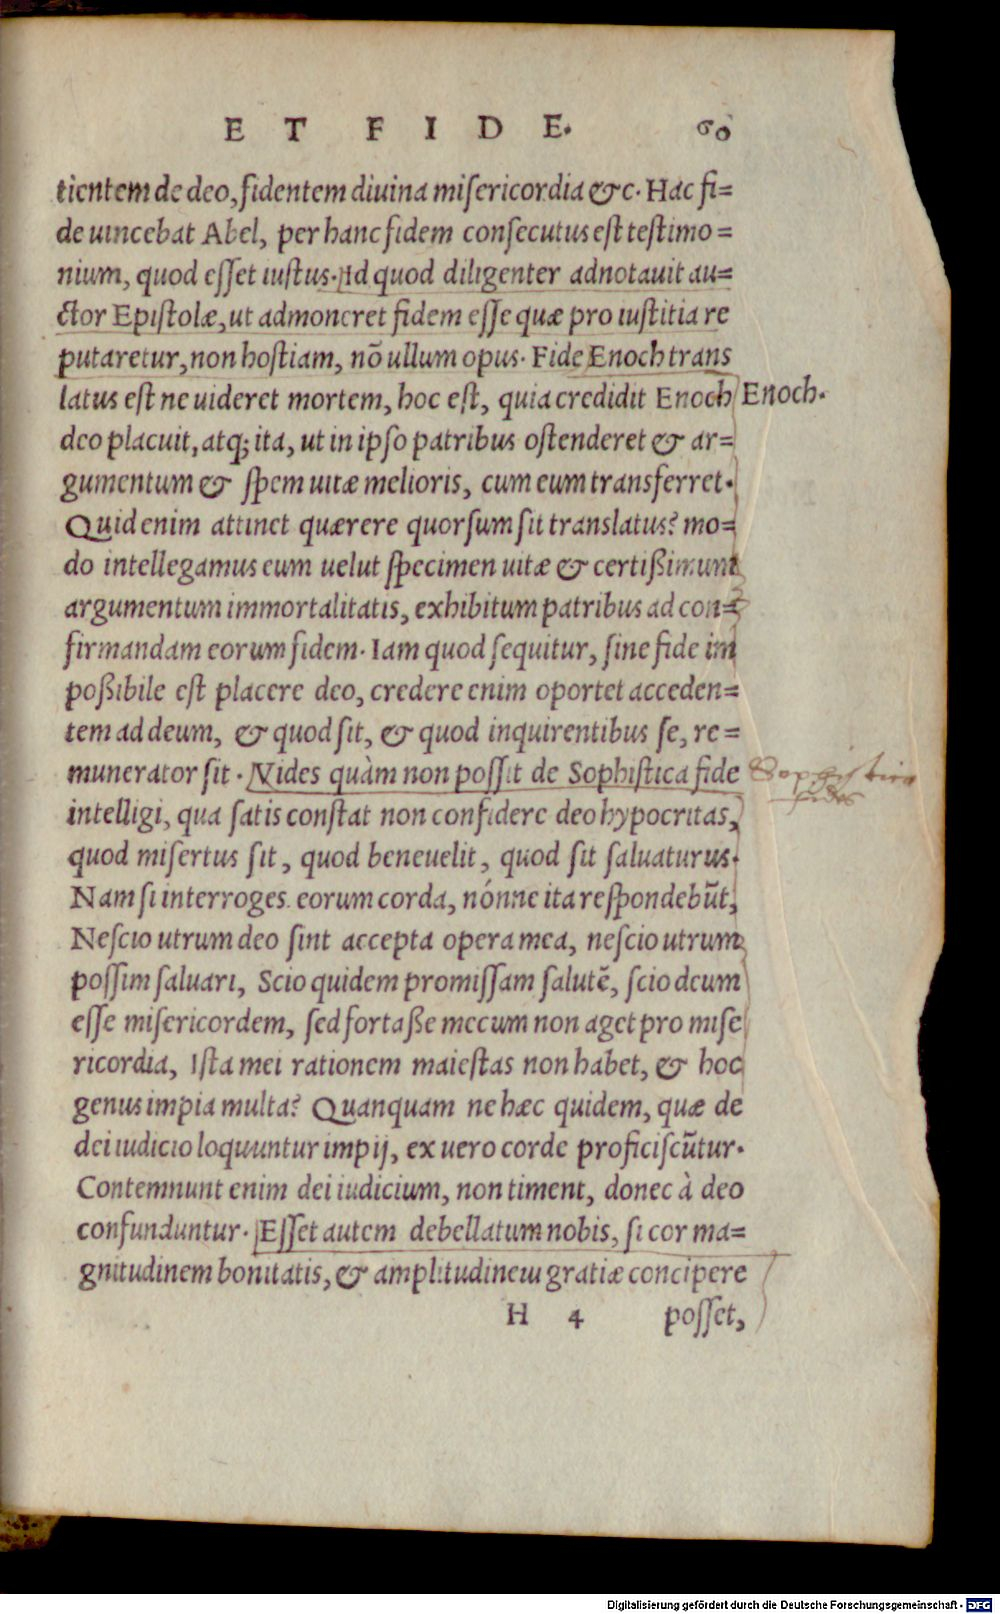 ET FIDE. 60
tientem de deo, fidentem diuina misericordia &c. Hac fi=
de uincebat Abel, per hanc fidem consecutus est testimo=
nium, quod esset iustus. Id quod diligenter adnotauit au=
ctor Epistolæ, ut admoneret fidem esse quæ pro iustitia re
putaretur, non hostiam, nō ullum opus. Fide Enoch trans
latus est ne uideret mortem, hoc est, quia credidit Enoch
Enoch.
deo placuit, atq; ita, ut in ipso patribus ostenderet & ar=
gumentum & spem uitæ melioris, cum eum transferret.
Quid enim attinet quærere quorsum sit translatus? mo=
do intellegamus eum uelut specimen uitæ & certißimum
argumentum immortalitatis, exhibitum patribus ad con=
firmandam eorum fidem. Iam quod sequitur, sine fide im
poßibile est placere deo, credere enim oportet acceden=
tem ad deum, & quod sit, & quod inquirentibus se, re=
munerator sit. Vides quàm non possit de Sophistica fide
Sophistica
fides
intelligi, qua satis constat non confidere deo hypocritas,
quod misertus sit, quod beneuelit, quod sit saluaturus.
Nam si interroges eorum corda, nónne ita respondebūt,
Nescio utrum deo sint accepta opera mea, nescio utrum
possim saluari, Scio quidem promissam salutē, scio deum
esse misericordem, sed fortaße mecum non aget pro mise
ricordia, Ista mei rationem maiestas non habet, & hoc
genus impia multa? Quanquam ne hæc quidem, quæ de
dei iudicio loquuntur impij, ex uero corde proficiscūtur.
Contemnunt enim dei iudicium, non timent, donec à deo
confunduntur. Esset autem debellatum nobis, si cor ma=
gnitudinem bonitatis, & amplitudinem gratiæ concipere
H 4 posset,
Digitalisierung gefördert durch die Deutsche Forschungsgemeinschaft - DFG